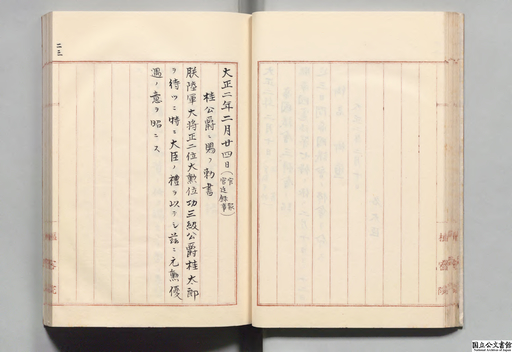 大正二年二月廿四日（官報 宮廷録事）
桂公爵ニ賜フ勅書
朕陸軍大将正二位大勲位功三級公爵桂太郎
ヲ待ツニ特ニ大臣ノ礼ヲ以テシ茲ニ元勲優
遇ノ意ヲ昭ニス
二三
国立公文書館
National Archives of Japan